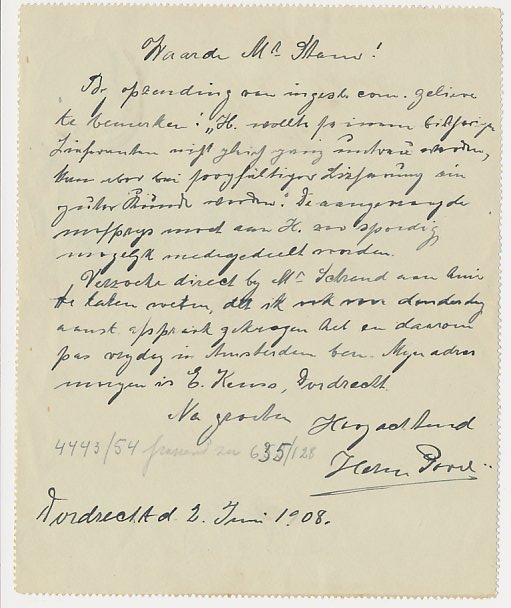 Waarde Mr Stam!
By opzending van ingesl. com. gelieve
te bemerken: „H. wollte so einem bisherigen
Lieferanten nicht gleich ganz untreu werden,
kann aber bei sorgfältiger Lieferung ein
guter Kunde werden." De aangevraagde
prys moet aan H. zoo spoedig
mogelyk medegedeelt worden.
Verzoeke direct by Mr Schrand aan huis
te laten weten, dat ik ook voor donderdag
aanst. afspraak gekregen heb en daarom
pas vrydag in Amsterdam ben. Myn adres
morgen is E. Keuss, Dordrecht
Na groeten Hoogachtend
4443/54 635/128
Herm
Dordrecht d. 2. Juni 1908.